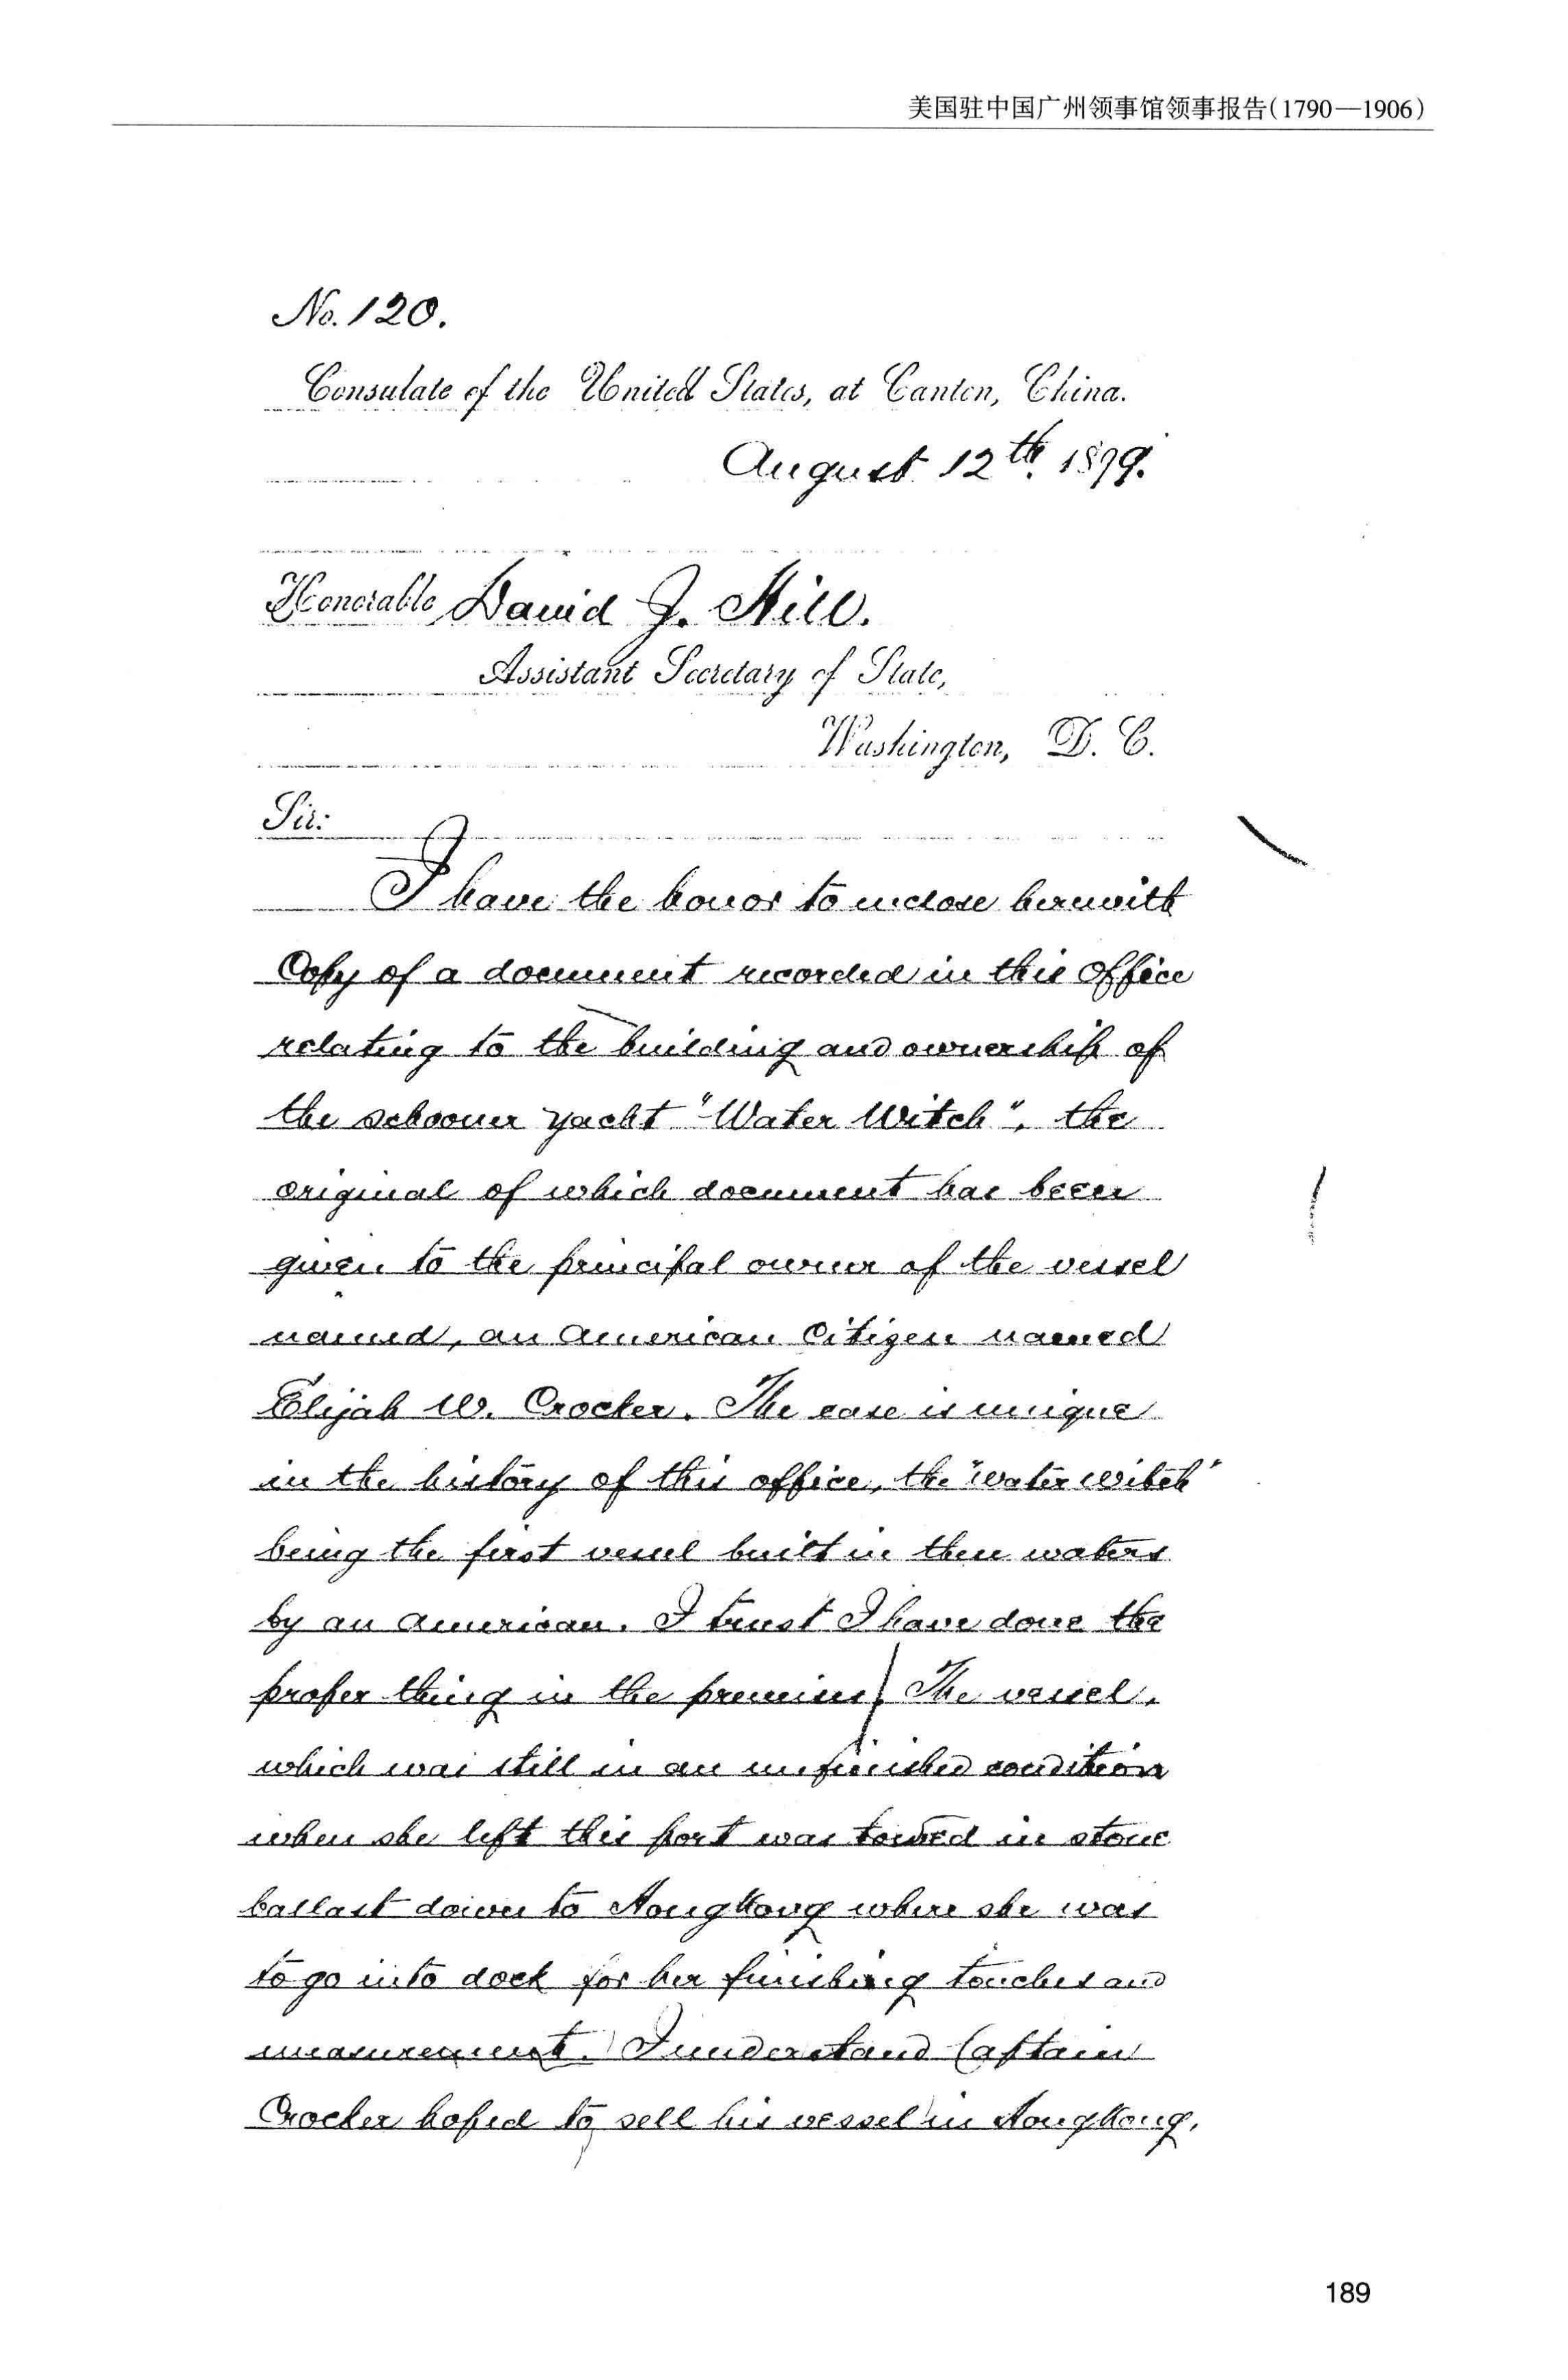 美国驻中国广州领事馆领事报告(1790—1906)
No. 120.
Consulate of the United States, at Canton, China.
August 12th. 1899.
Honorable David J. Hill.
Assistant Secretary of State,
Washington, D. C.
Sir:
I have the honor to inclose herewith
Copy of a document recorded in this office
relating to the building and ownership of
the schooner yacht "Water Witch", the
original of which document has been
given to the principal owner of the vessel
named, an American Citizen named
Elijah W. Crocker. The case is unique
in the history of this office, the "Water Witch"
being the first vessel built in these waters
by an American. I trust I have done the
proper thing in the premises. The vessel,
which was still in an unfinished condition
when she left this port was towed in stone
ballast down to HongKong where she was
to go into dock for her finishing touches and
measurement. I understand Captain
Crocker hoped to sell his vessel in HongKong,
189